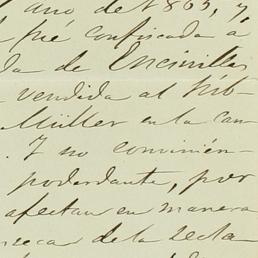 año de 1865, y
fué confiscada á
da de Encinillas
vendida al súb-
Müller en la can
. Y no convinién-
poderdante, por
afectan en manera
seca de la recla